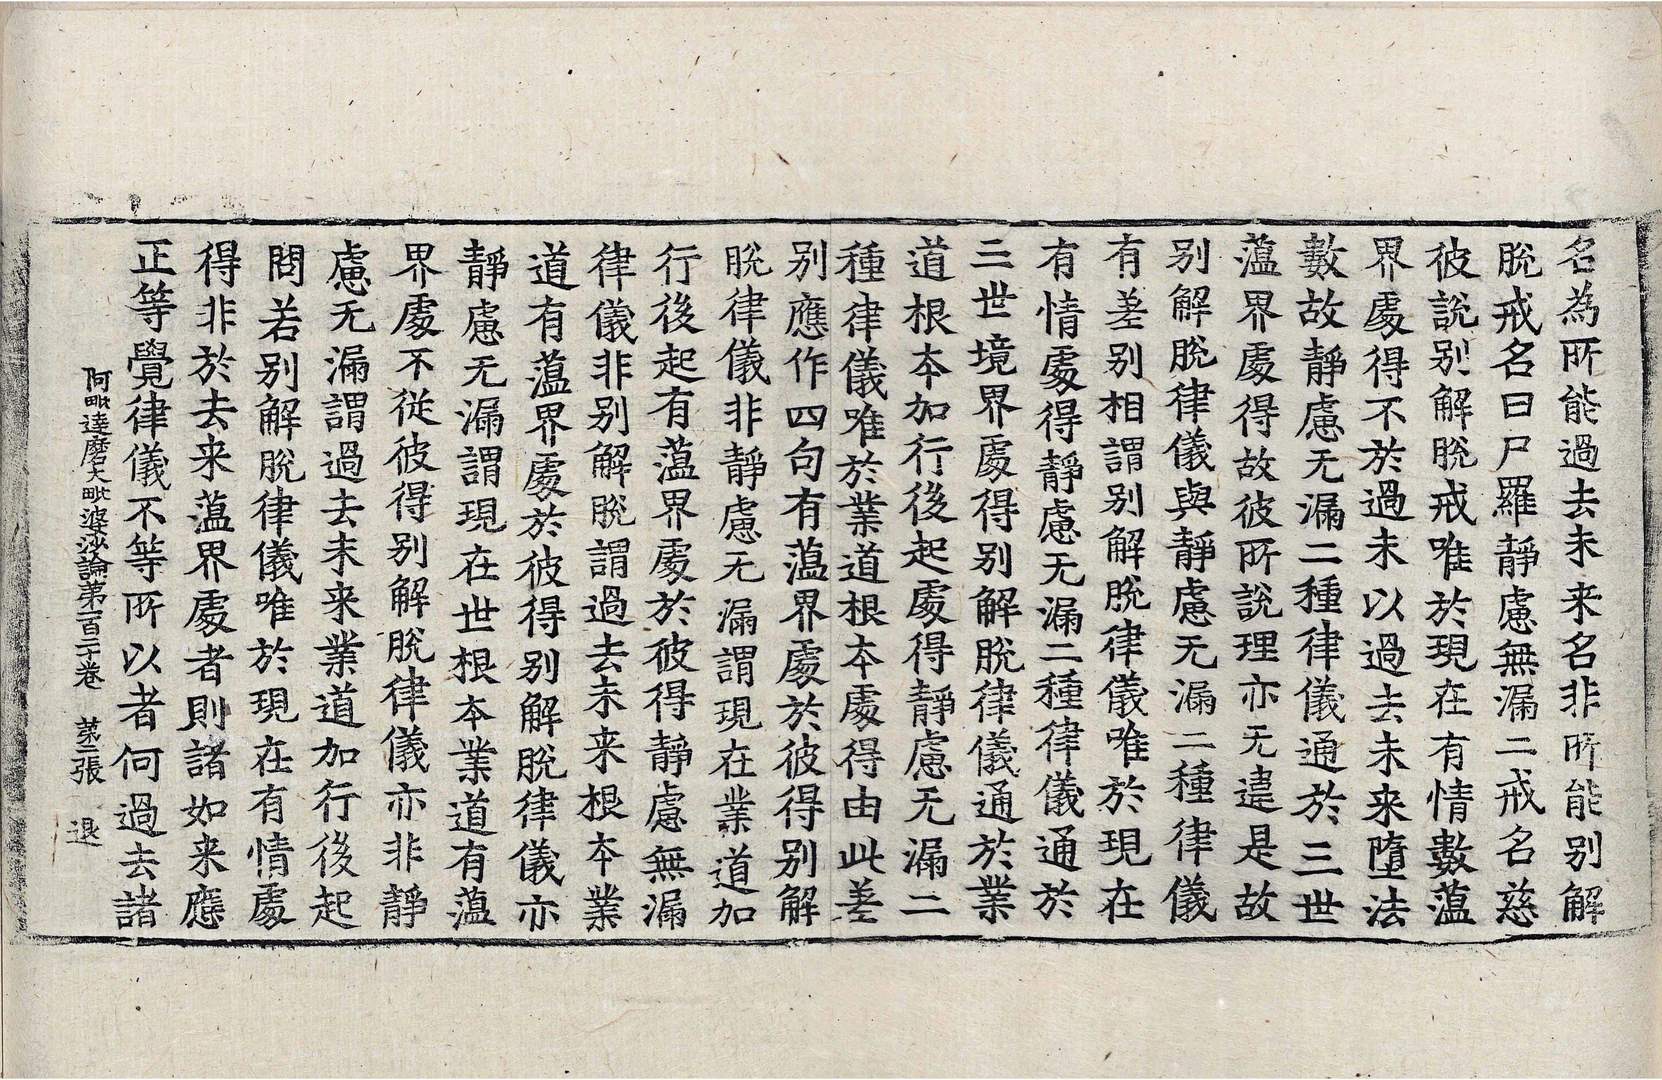 名為所能過去未来名非所能別解
脫戒名曰尸羅靜慮無漏二戒名慈
彼説別解脫戒唯於現在有情數藴
界處得不於過未以過去未来墮法
數故靜慮无漏二種律儀通於三世
藴界處得故彼所說理亦无違是故
别解脫律儀與靜慮无漏二種律儀
有差別相謂別解脫律儀唯於現在
有情處得靜慮无漏二種律儀通於
三世境界處得别解脫律儀通於業
道根本加行後起處得靜慮无漏二
種律儀唯於業道根本處得由此差
別應作四句有藴界處於彼得别解
脫律儀非靜慮无漏謂現在業道加
行後起有藴界處於彼得靜慮無漏
律儀非别解脫謂過去未来根本業
道有藴界處於彼得别解脫律儀亦
靜慮无漏謂現在世根本業道有藴
界處不從彼得别解脫律儀亦非靜
慮无漏謂過去未来業道加行後起
問若別解脫律儀唯於現在有情處
得非於去来藴界處者則諸如来應
正等覺律儀不等所以者何過去諸
阿毗達磨大毗婆沙論第一百二十卷 第二張 退